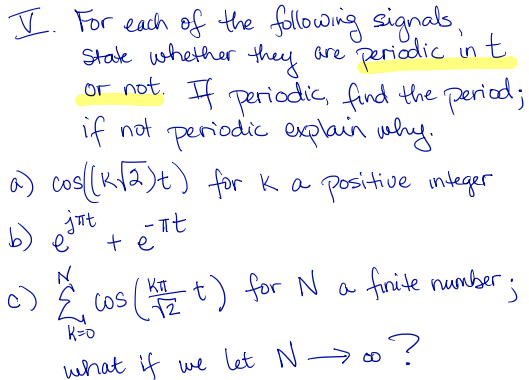 V. For each of the following signals,
state whether they are periodic in t
or not. If periodic, find the period;
if not periodic explain why.
a) cos((k√2)t) for k a positive integer
b) e^{jπt} + e^{-πt}
c) \sum_{k=0}^{N} cos(\frac{kπ}{√2} t) for N a finite number;
what if we let N → ∞?